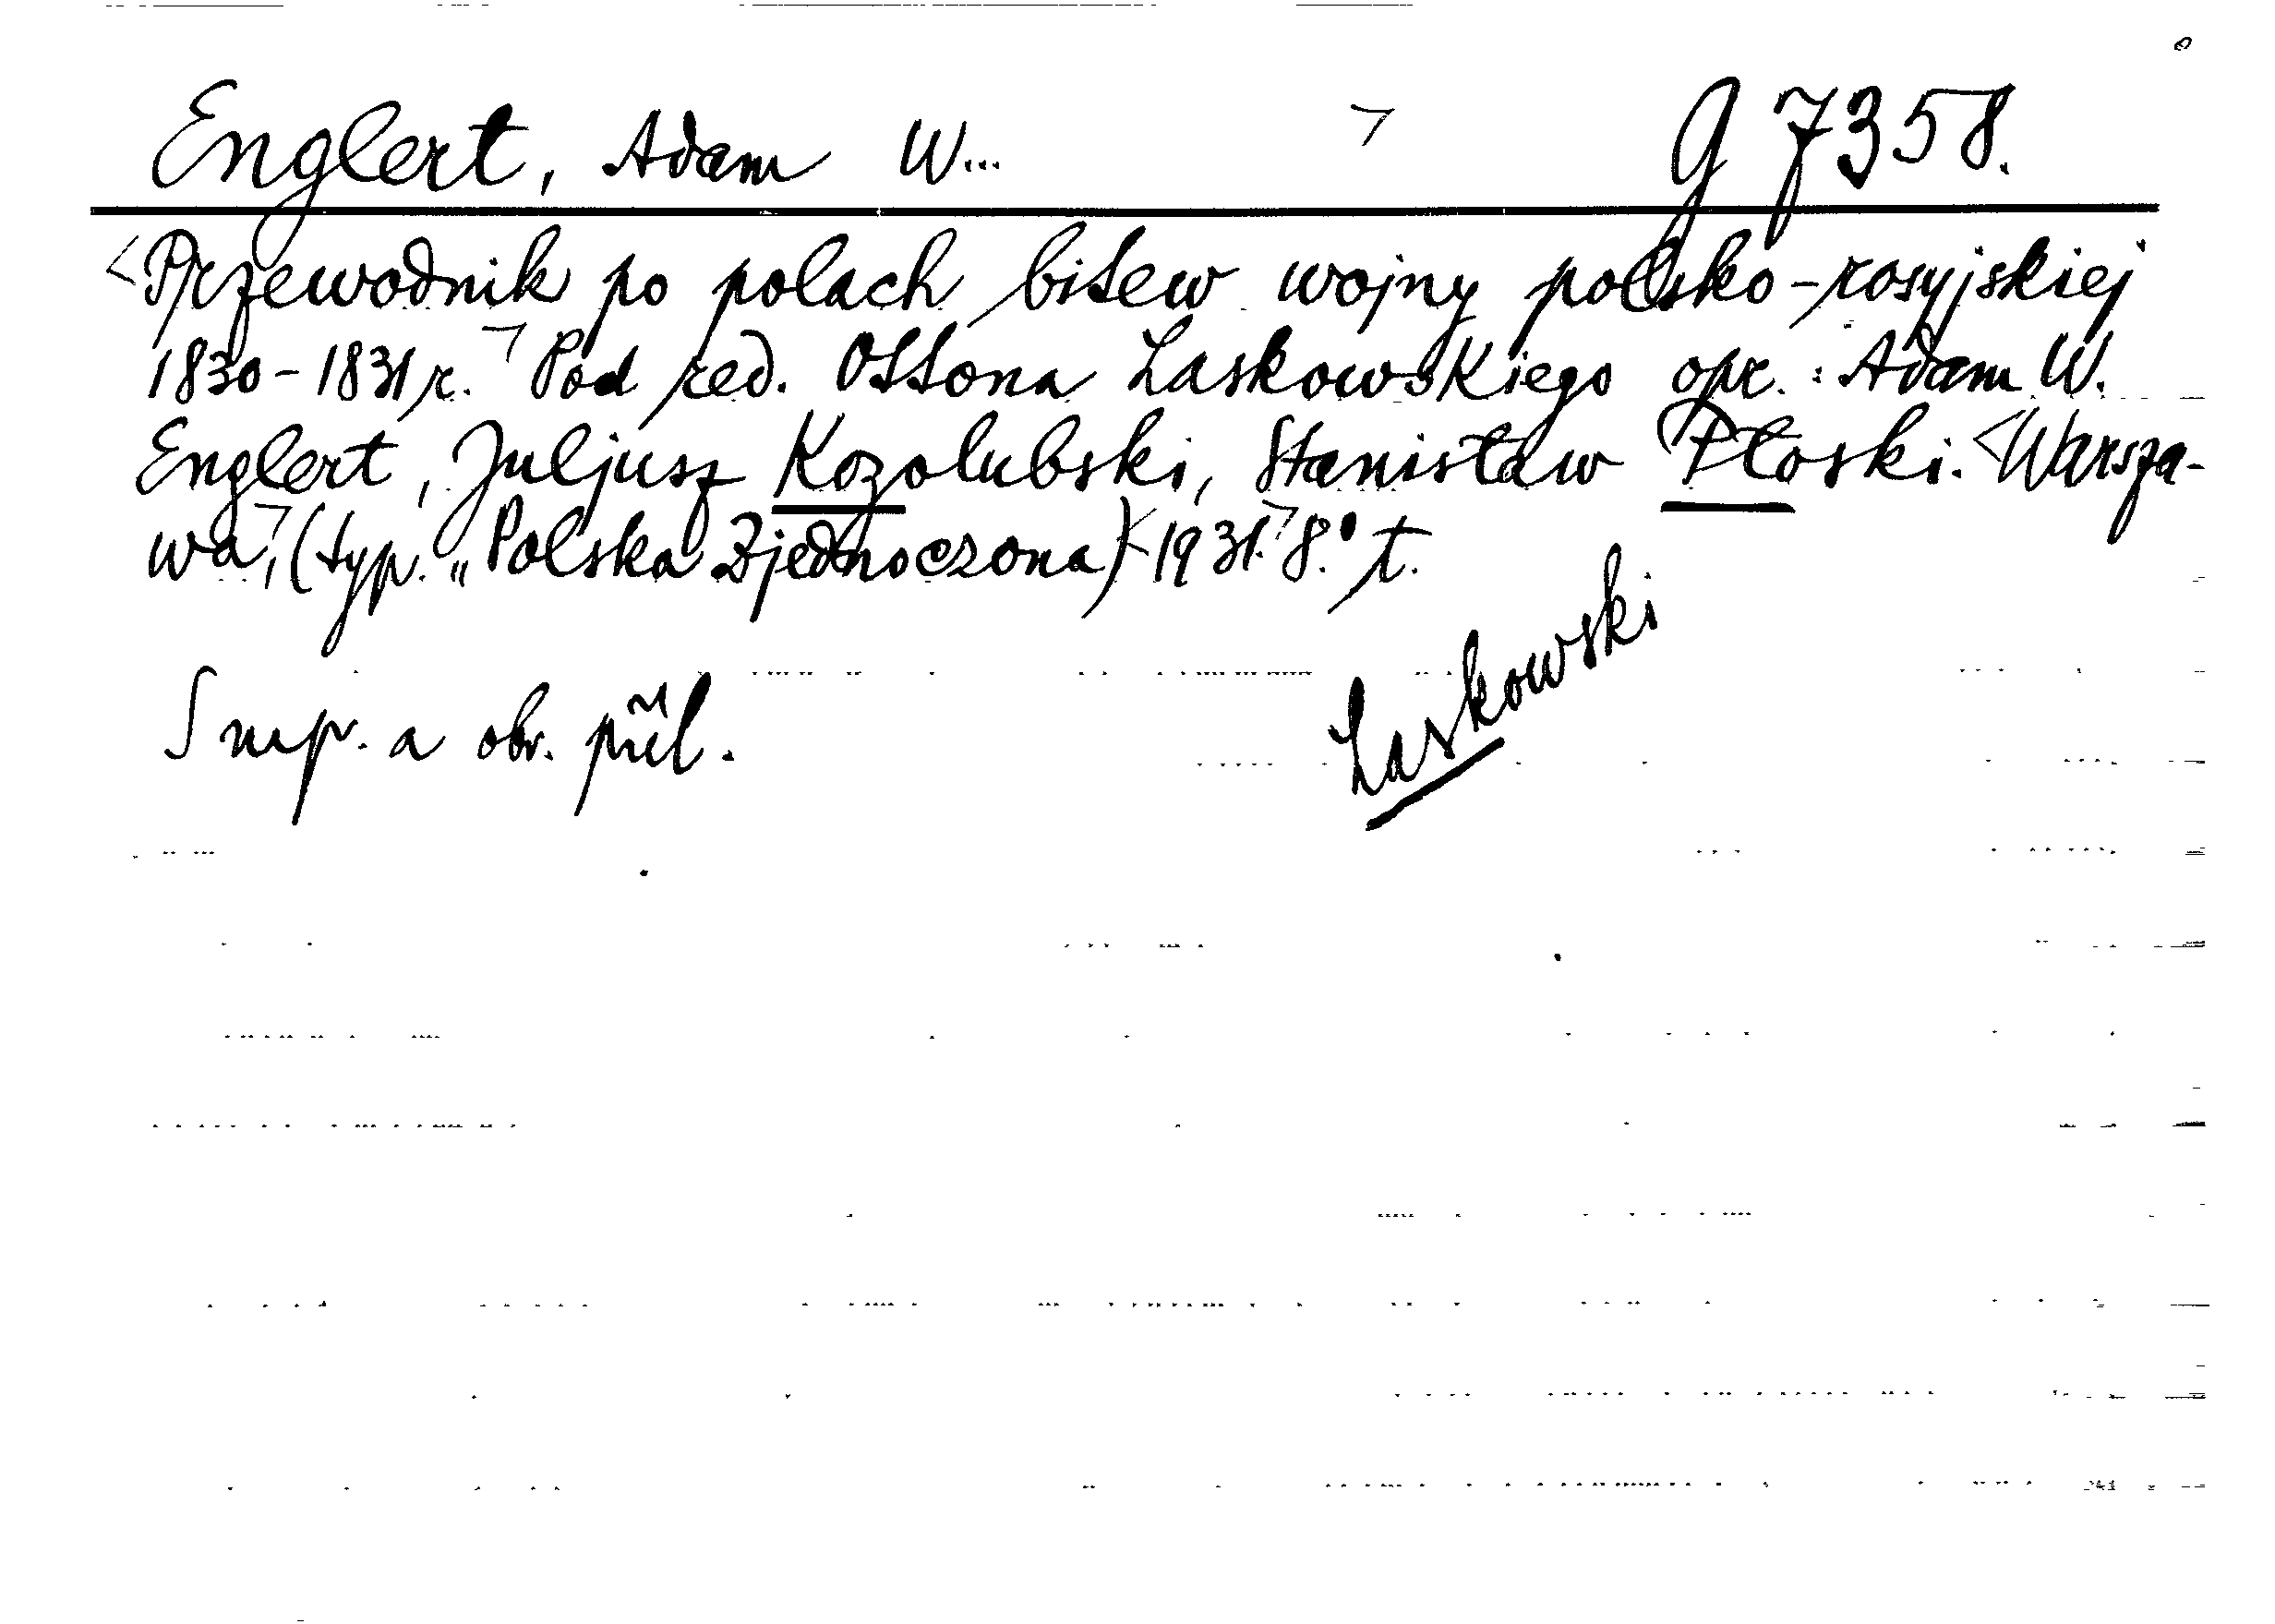 Englert, Adam W... g 7358.
<Przewodnik po polach bitew wojny polsko-rosyjskiej
1830-1831 r.> Pod red. Ottona Laskowskiego opr.: Adam W.
Englert, Juljusz Kozolubski, Stanisław Płoski. <Warsza-
wa>, (typ. „Polska Zjednoczona) <1931.> 8.° t.
Laskowski
S mp. a obr. příl.